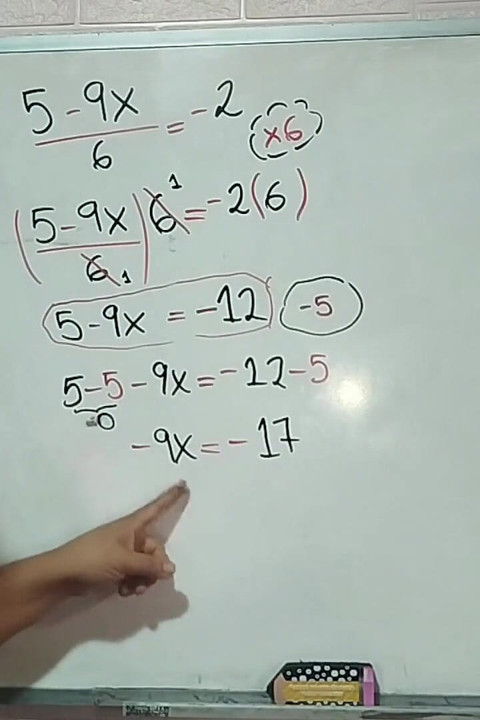 5-9x/6 = -2 ×6
(5-9x/6 1) 6 1 = -2(6)
5-9x = -12 -5
5-5-9x = -12-5
0
-9x = -17